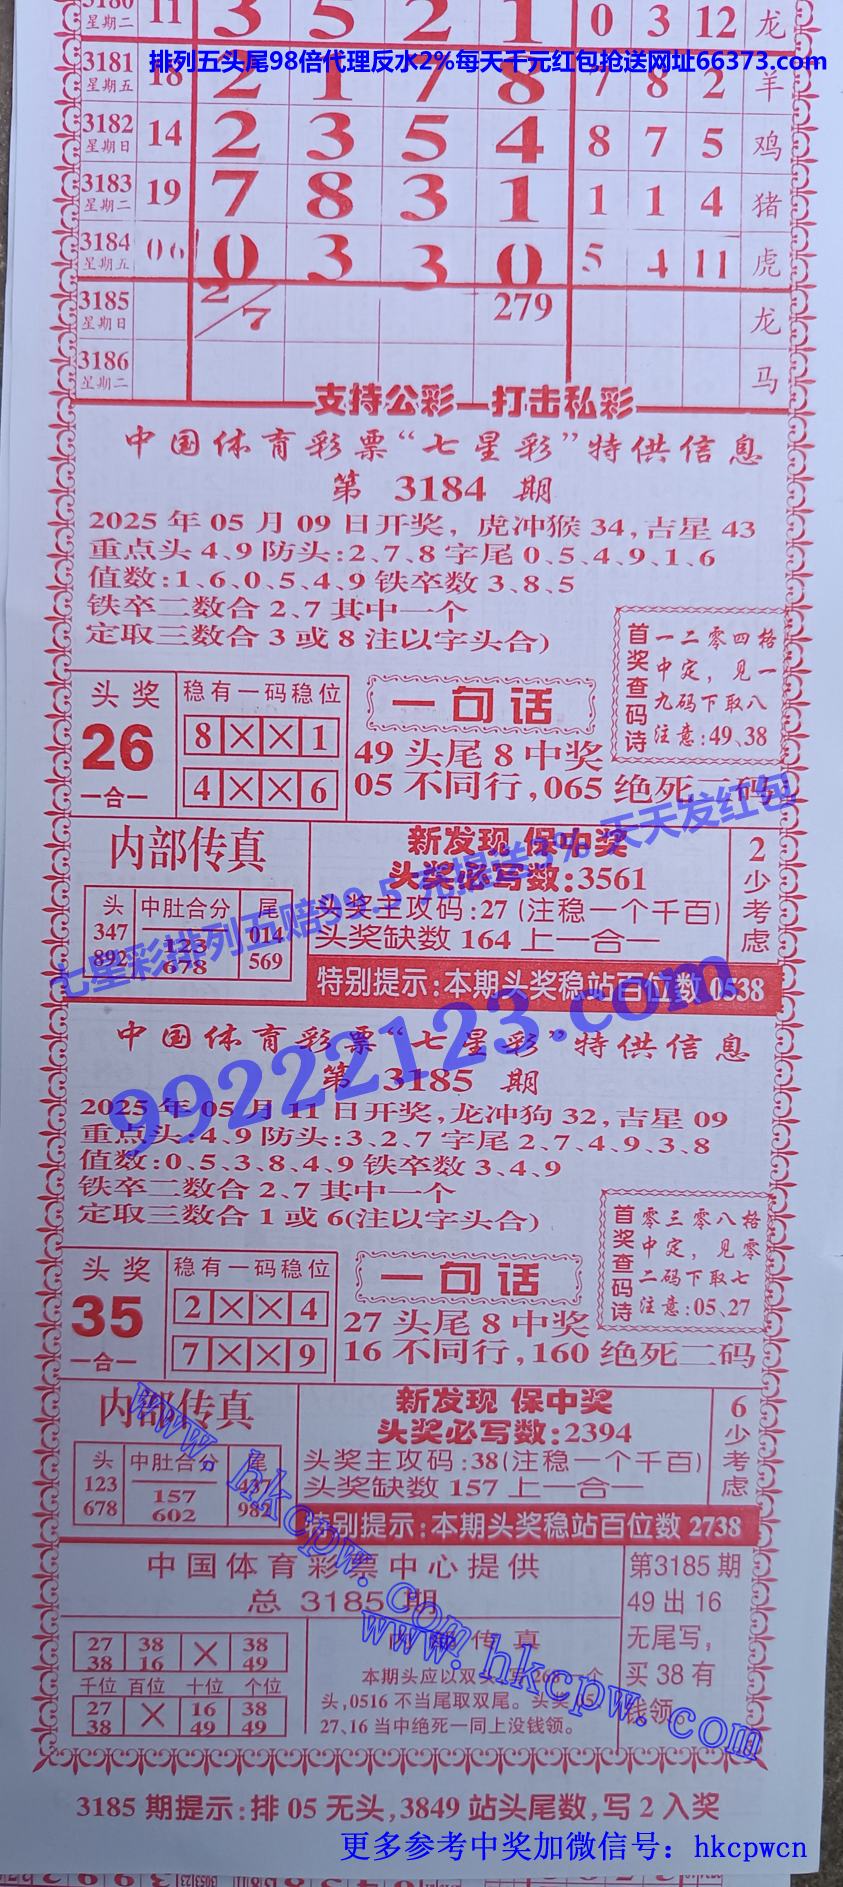 3180 星期二 11 3 5 2 1 0 3 12 龙
排列五头尾98倍代理反水2%每天千元红包抢送网址66373.com
3181 星期五 18 2 1 7 8 7 8 2 羊
3182 星期日 14 2 3 5 4 8 7 5 鸡
3183 星期二 19 7 8 3 1 1 1 4 猪
3184 星期五 06 0 3 3 0 5 4 11 虎
3185 星期日 2/7 279 龙
3186 星期二 马
支持公彩—打击私彩
中国体育彩票“七星彩”特供信息
第 3184 期
2025 年 05 月 09 日开奖, 虎冲猴 34, 吉星 43
重点头 4、9 防头:2、7、8 字尾 0、5、4、9、1、6
值数:1、6、0、5、4、9 铁卒数 3、8、5
铁卒二数合 2、7 其中一个
定取三数合 3 或 8 注以字头合)
首奖查码诗
一二零四格
中定, 见一
九码下取八
注意:49、38
头奖
26
一合一
稳有一码稳位
8××1
4××6
一句话
49 头尾 8 中奖
05 不同行,065 绝死二码
内部传真
头 中肚合分 尾
347 123 014
892 678 569
新发现 保中奖
头奖必写数:3561
头奖主攻码:27 (注稳一个千百)
头奖缺数 164 上一合一
2少考虑
特别提示:本期头奖稳站百位数 0538
七星彩排列五赔99.5
天天发红包
99222123.com
中国体育彩票“七星彩”特供信息
第 3185 期
2025 年 05 月 11 日开奖, 龙冲狗 32, 吉星 09
重点头:4、9 防头:3、2、7 字尾 2、7、4、9、3、8
值数:0、5、3、8、4、9 铁卒数 3、4、9
铁卒二数合 2、7 其中一个
定取三数合 1 或 6(注以字头合)
首奖查码诗
零三零八格
中定, 见零
二码下取七
注意:05、27
头奖
35
一合一
稳有一码稳位
2××4
7××9
一句话
27 头尾 8 中奖
16 不同行,160 绝死二码
内部传真
头 中肚合分 尾
123 157
678 602 982
新发现 保中奖
头奖必写数:2394
头奖主攻码:38(注稳一个千百)
头奖缺数 157 上一合一
6少考虑
特别提示:本期头奖稳站百位数 2738
www.hkcpw.com
中国体育彩票中心提供
总 3185 期
27 38 × 38
38 16 49
千位 百位 十位 个位
27 × 16 38
38 49 49
内部传真
本期头应以双头
头,0516 不当尾取双尾。头奖
27、16 当中绝死一同上没钱领。
第3185期
49 出 16
无尾写,
买 38 有
钱领。
www.hkcpw.com
3185 期提示:排 05 无头,3849 站头尾数,写 2 入奖
更多参考中奖加微信号：hkcpwcn